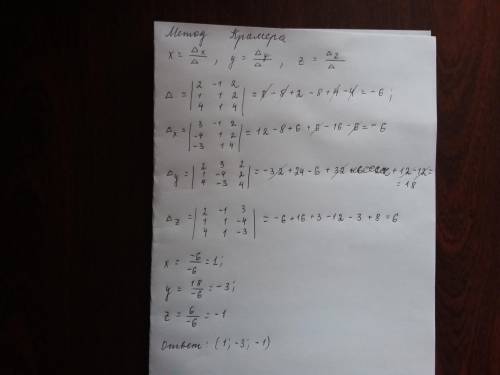 Метод Крамера
x = Δx/Δ , y = Δy/Δ , z = Δz/Δ
Δ = |2 -1 2; 1 1 2; 4 1 4| = 8 - 8 + 2 - 8 + 4 - 4 = -6;
Δx = |3 -1 2; -4 1 2; -3 1 4| = 12 - 8 + 6 + 6 - 16 - 6 = -6
Δy = |2 3 2; 1 -4 2; 4 -3 4| = -32 + 24 - 6 + 32 + 12 - 12 =
= 18
Δz = |2 -1 3; 1 1 -4; 4 1 -3| = -6 + 16 + 3 - 12 - 3 + 8 = 6
x = -6/-6 = 1;
y = 18/-6 = -3;
z = 6/-6 = -1
Ответ: (1; -3; -1)